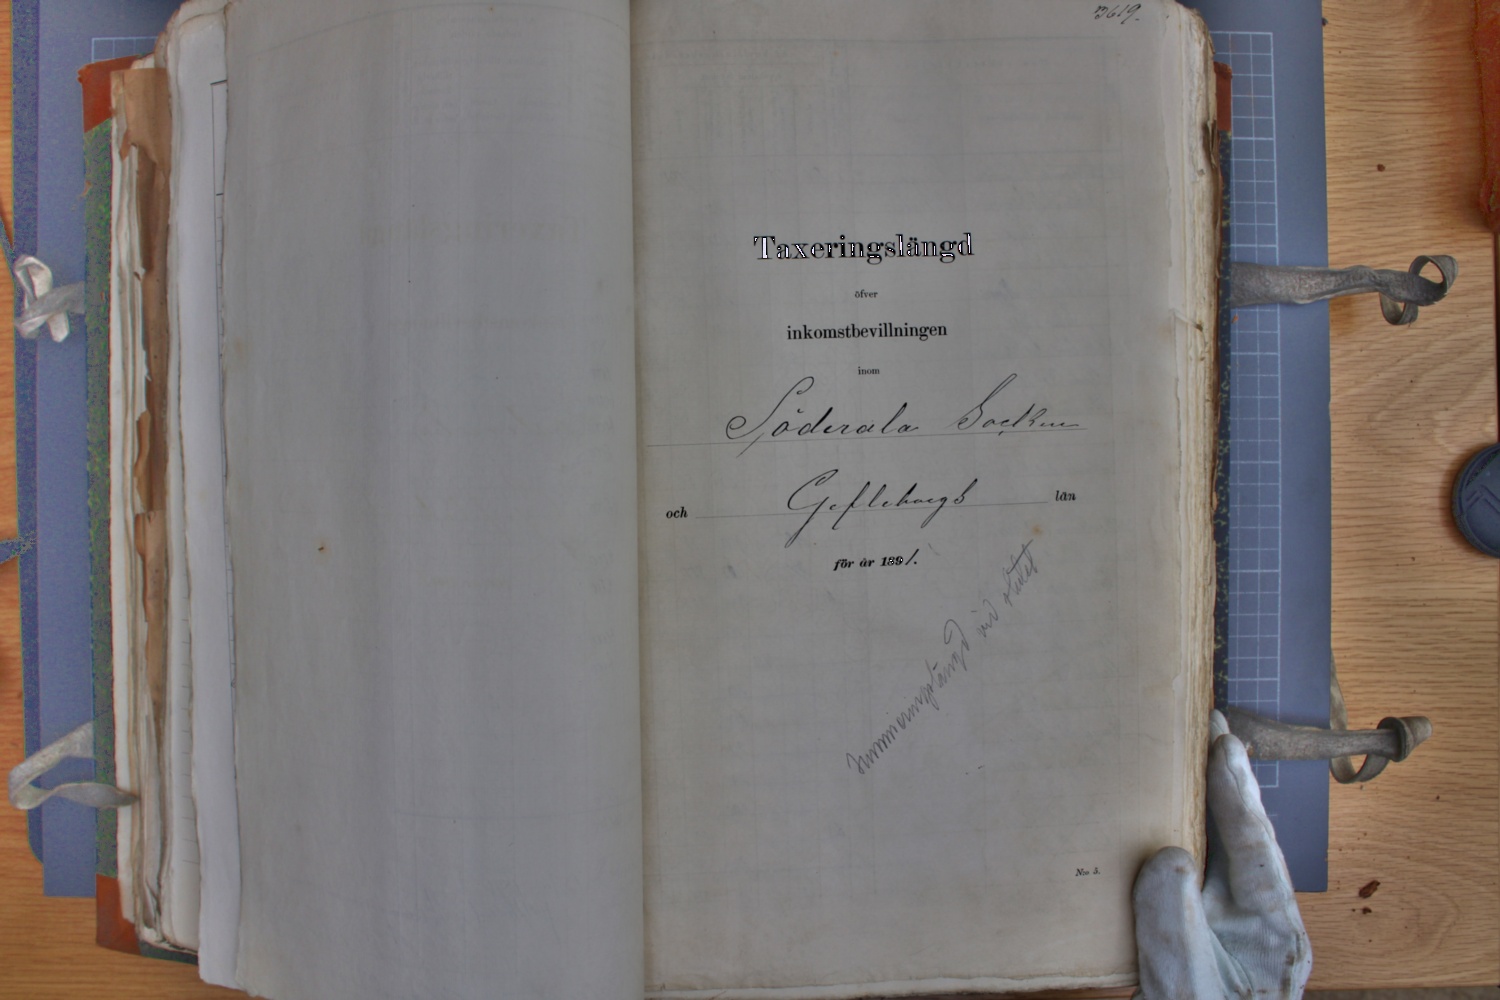 3619.
Taxeringslängd
öfver
inkomstbevillningen
inom
Söderala Socken
och Gefleborgs län
för år 1891.
Summeringslängd vid slutet
N:o 5.